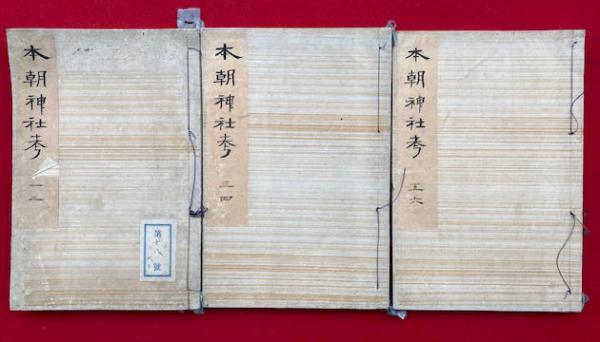 本朝神社考
一二
第十八號
本朝神社考
三四
本朝神社考
五六